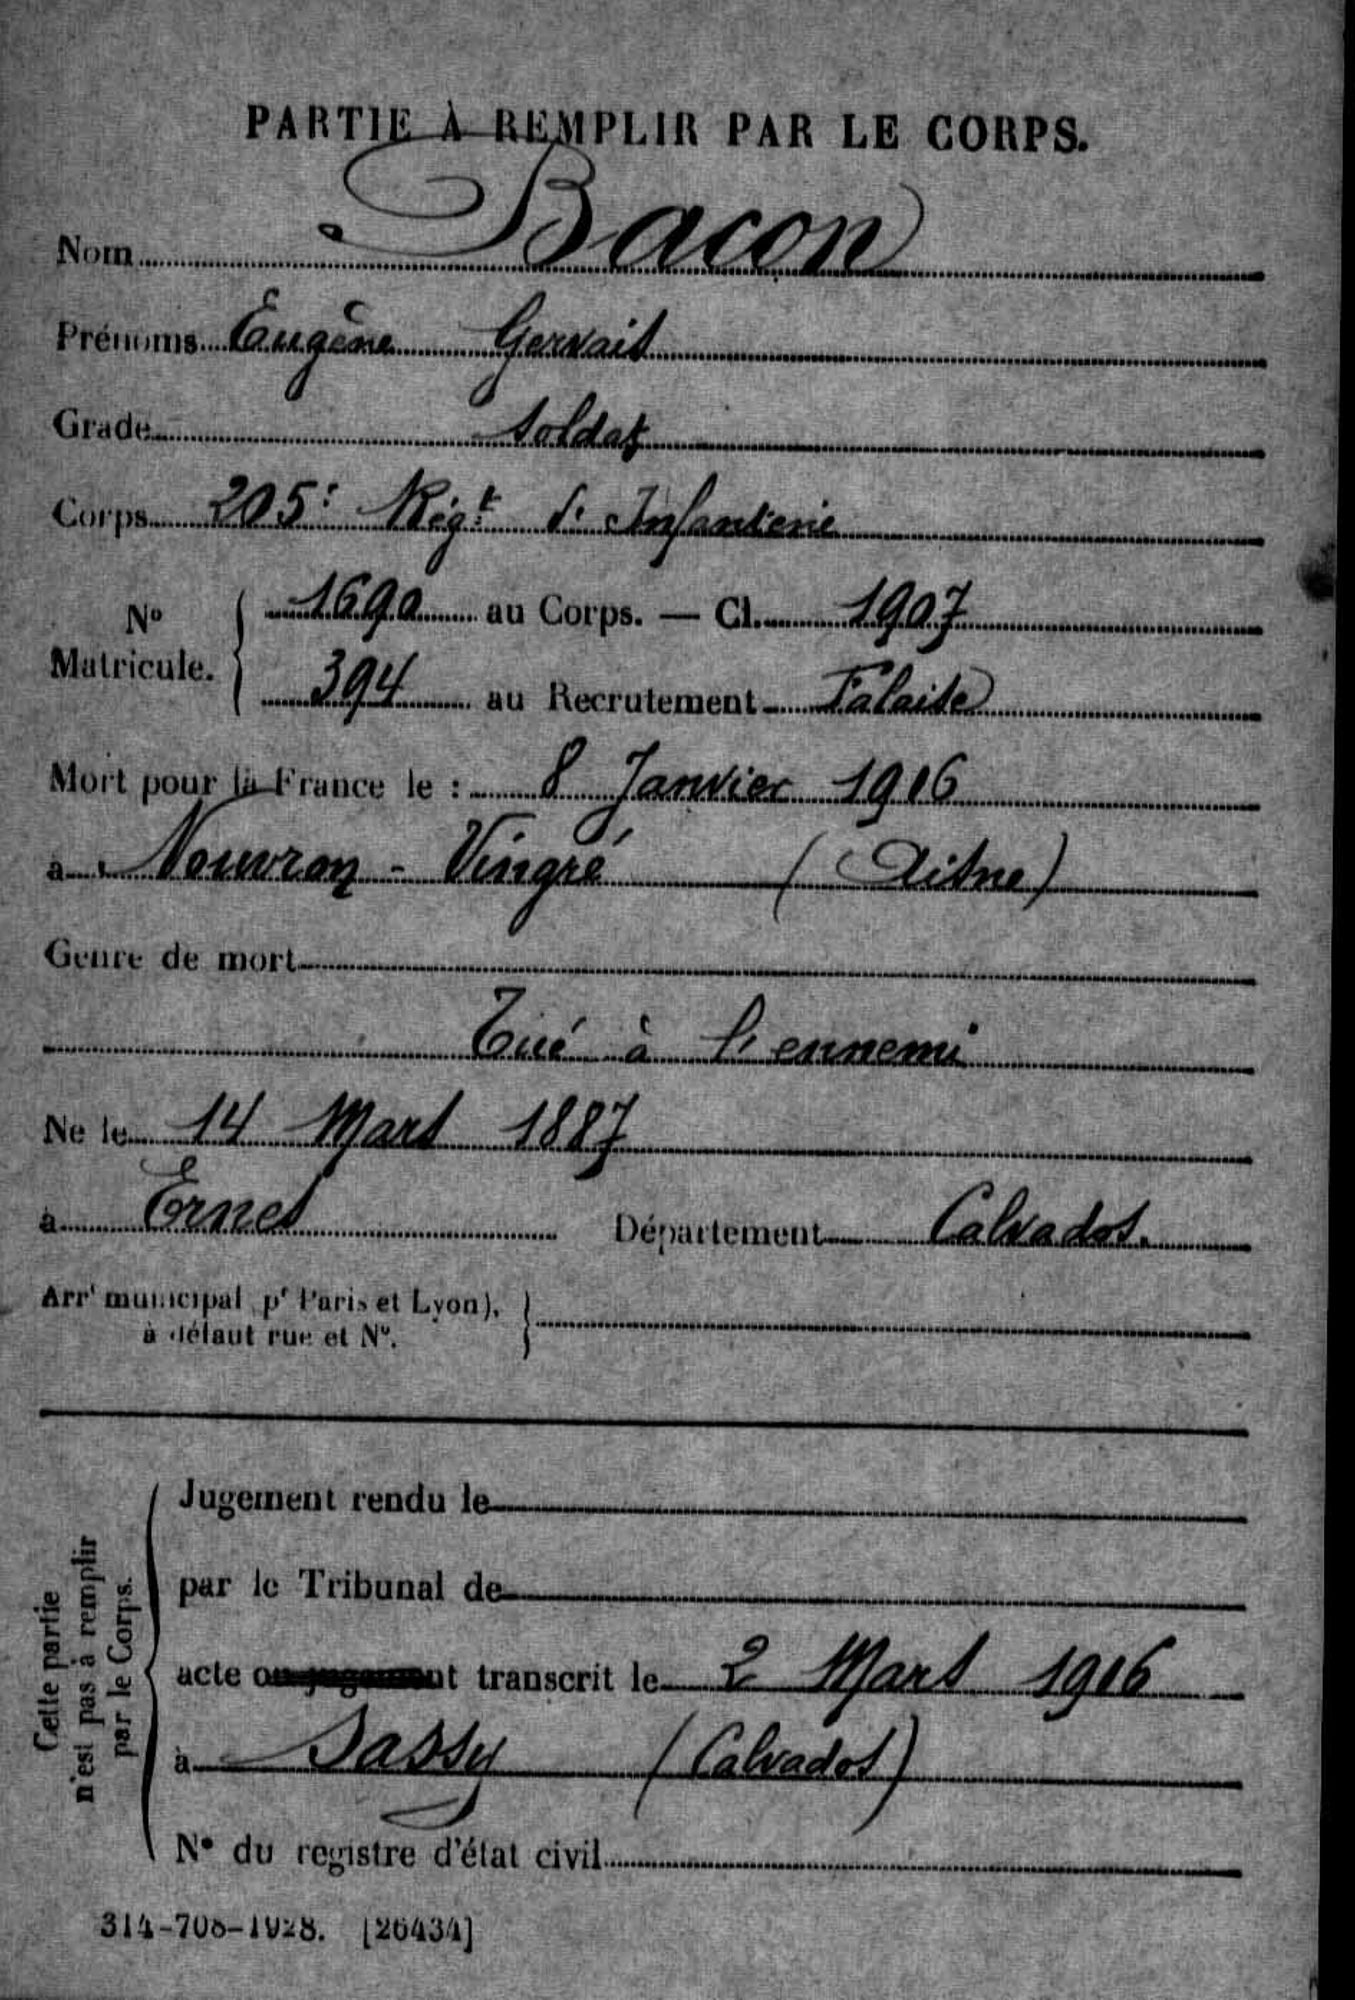 PARTIE À REMPLIR PAR LE CORPS.
Nom Bacon
Prénoms Eugène Gervais
Grade Soldat
Corps 205e Régt d'Infanterie
No Matricule. 1690 au Corps. — Cl. 1907
394 au Recrutement Falaise
Mort pour la France le : 8 Janvier 1916
à Nouvron - Vingré (Aisne)
Genre de mort
Tué à l'ennemi
Né le 14 Mars 1887
à Ernes Département Calvados.
Arrt municipal (pr Paris et Lyon),
à défaut rue et No.
Cette partie
n'est pas à remplir
par le Corps.
Jugement rendu le
par le Tribunal de
acte ou jugement transcrit le 2 Mars 1916
à Sassy (Calvados)
No du registre d'état civil
314-708-1928. [26434]